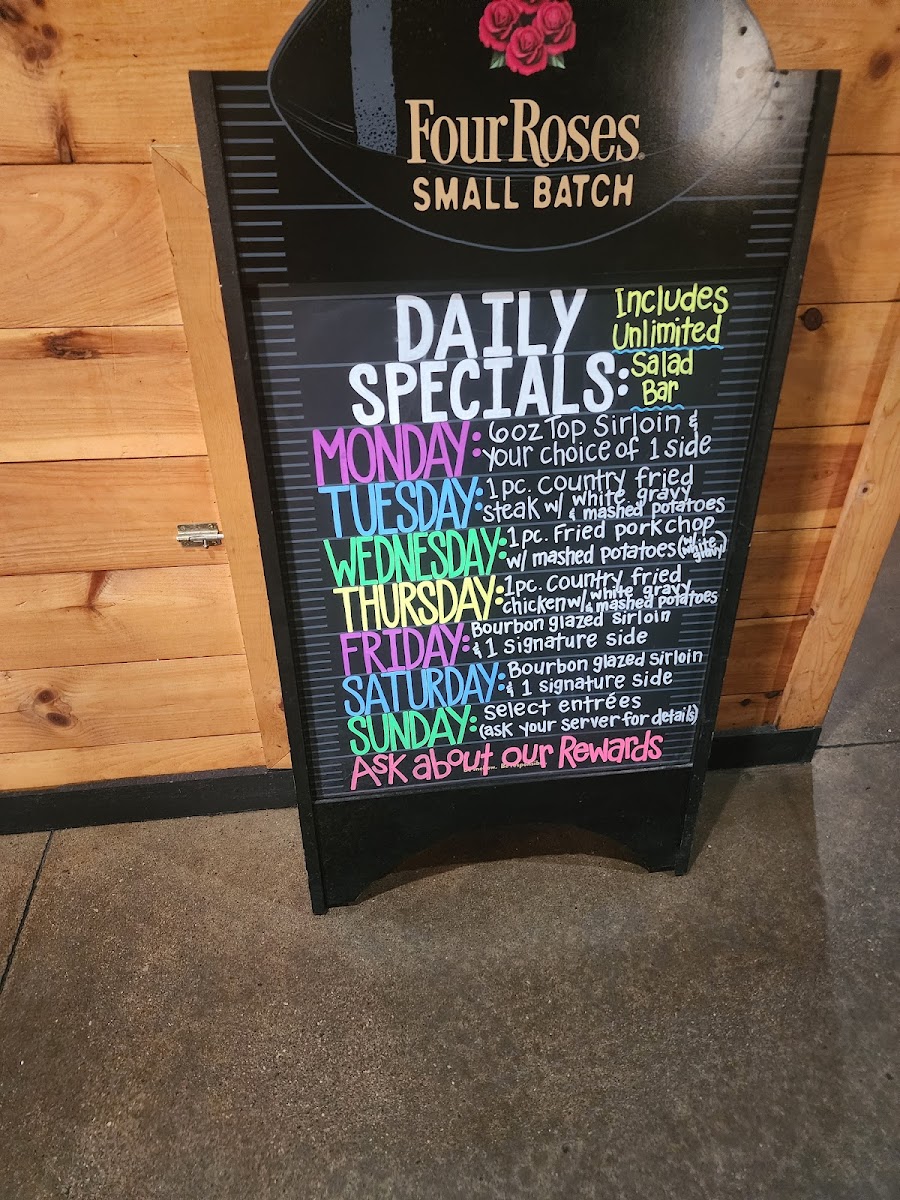 Four Roses
SMALL BATCH
DAILY
SPECIALS:
Includes
Unlimited
Salad
Bar
MONDAY: 6oz Top Sirloin &
your choice of 1 side
TUESDAY: 1 pc. country fried
steak w/ white gravy
& mashed potatoes
WEDNESDAY: 1 pc. Fried pork chop
w/ mashed potatoes (white gravy)
THURSDAY: 1 pc. country fried
chicken w/ white gravy
& mashed potatoes
FRIDAY: Bourbon glazed sirloin
& 1 signature side
SATURDAY: Bourbon glazed sirloin
& 1 signature side
SUNDAY: select entrées
(ask your server for details)
Ask about our Rewards